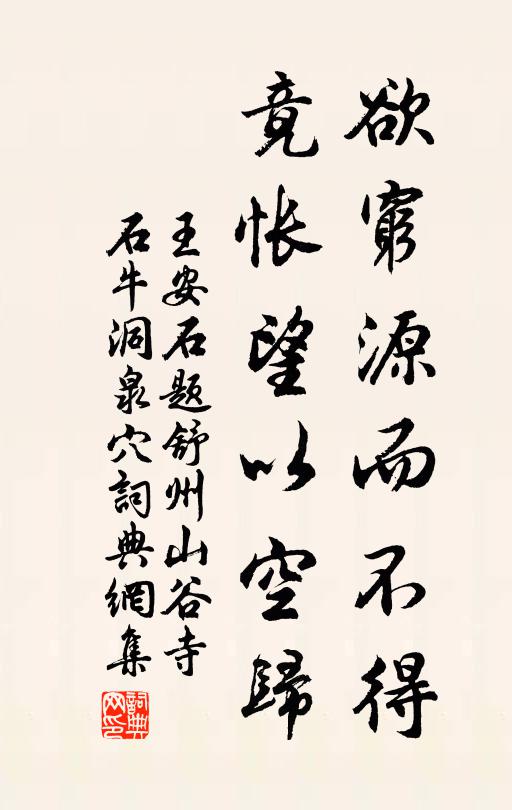 欲窮源而不得
竟悵望以空歸
王安石題舒州山谷寺
石牛洞泉穴詞典網集
詞典网印